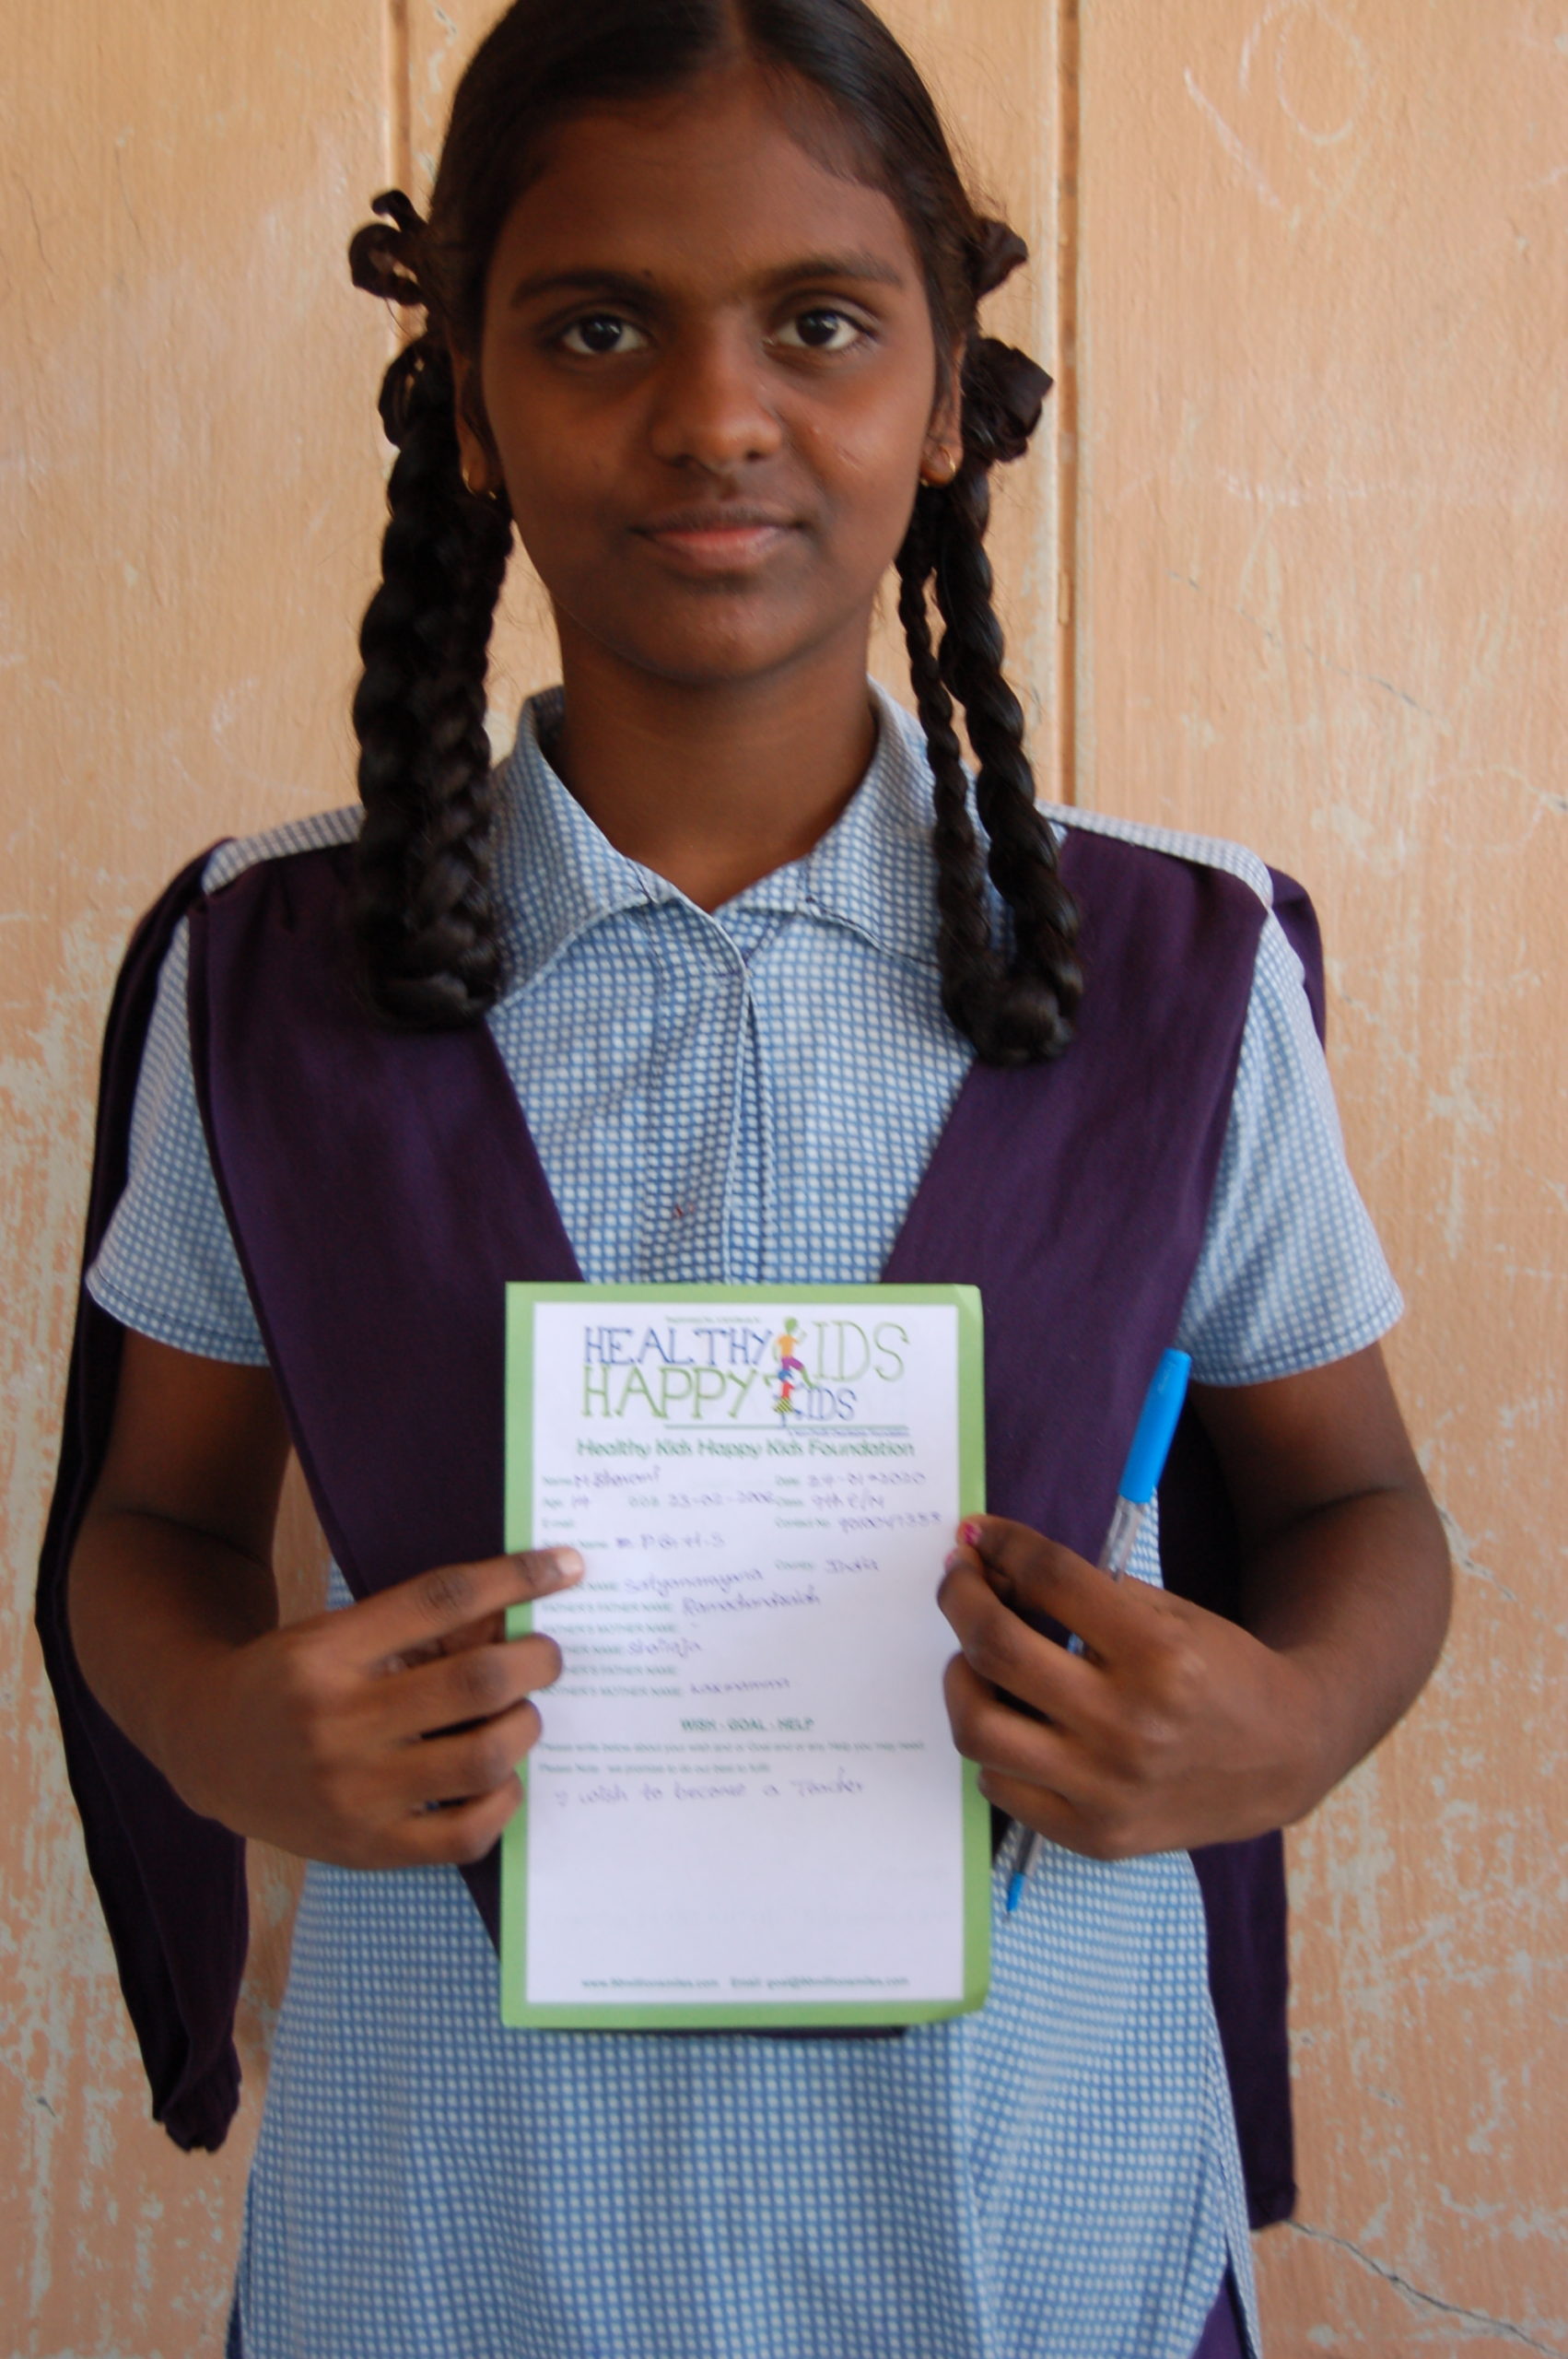 HEALTHY KIDS
HAPPY KIDS
Healthy Kids Happy Kids Foundation
Name: M. Date: 24-01-2020
Age: 14 DOB: 23-02-2006 Class: 9th E/M
E-mail: Contact No:
Name: M.P.G.H.S
NAME: Satyanarayana Country: India
FATHER'S FATHER NAME: Ramachandraiah
FATHER'S MOTHER NAME: -
THER NAME: Shailaja
THER'S FATHER NAME:
MOTHER'S MOTHER NAME:
WISH - GOAL - HELP
Please write below about your wish and or Goal and or any Help you may need.
Please Note: we promise to do our best to fulfil
I wish to become a Teacher